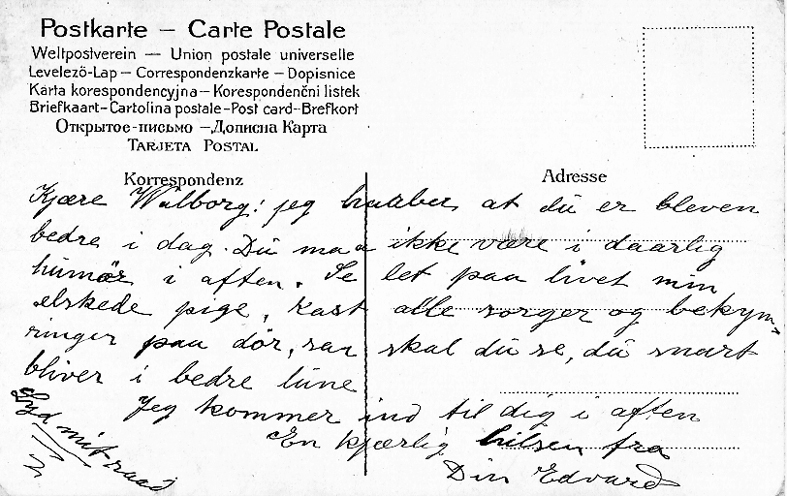 Postkarte — Carte Postale
Weltpostverein — Union postale universelle
Levelezö-Lap — Correspondenzkarte — Dopisnice
Karta korespondencyjna — Korespondenčni listek
Briefkaart — Cartolina postale — Post card — Brefkort
Открытое-письмо — Дописна Карта
TARJETA POSTAL
Korrespondenz
Adresse
Kjære Walborg! jeg haaber at du er bleven
bedre i dag. Du maa ikke være i daarlig
humör i aften. Se let paa livet min
elskede pige, kast alle sorger og bekym-
ringer paa dör, saa skal du se, du snart
bliver i bedre lune
Jeg kommer ind til dig i aften
En kjærlig hilsen fra
Din Edvard
Lyd mit raad